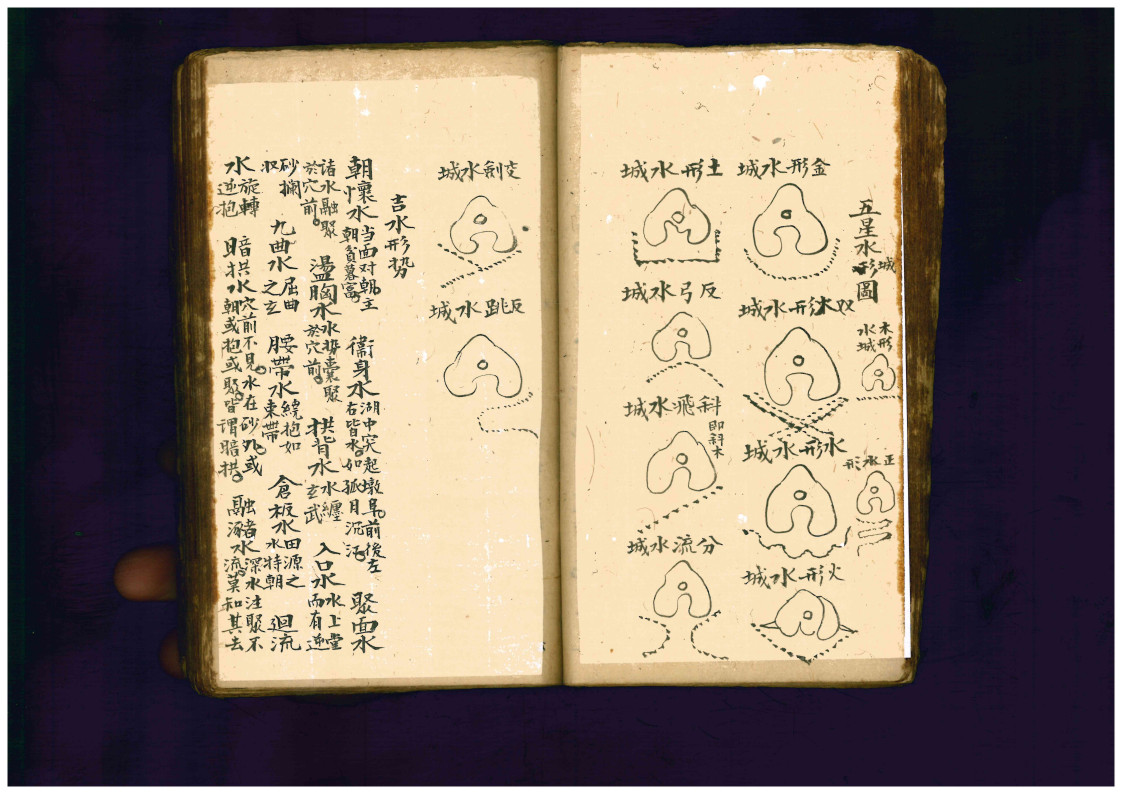 五星水城形圖
木形水城
正木形
金形水城
双木形水城
水形水城
火形水城
土形水城
反弓水城
斜飛水城
即斜木
分流水城
交劍水城
反跳水城
吉水形势
朝懷水当面对朝主朝貧暮富衛身水湖中突起墩阜前後左右皆水如孤月沉江聚面水
諸水融聚於穴前盪胸水水势囊聚於穴前拱背水水纏玄武入口水水上堂而有逆
砂攔收九曲水屈曲之玄腰帶水繞抱如束帶倉板水田源之水特朝迴流
水旋轉逆抱暗拱水穴前不見水在砂外或朝或抱或聚皆謂暗拱融瀦水深水注聚不流莫知其去